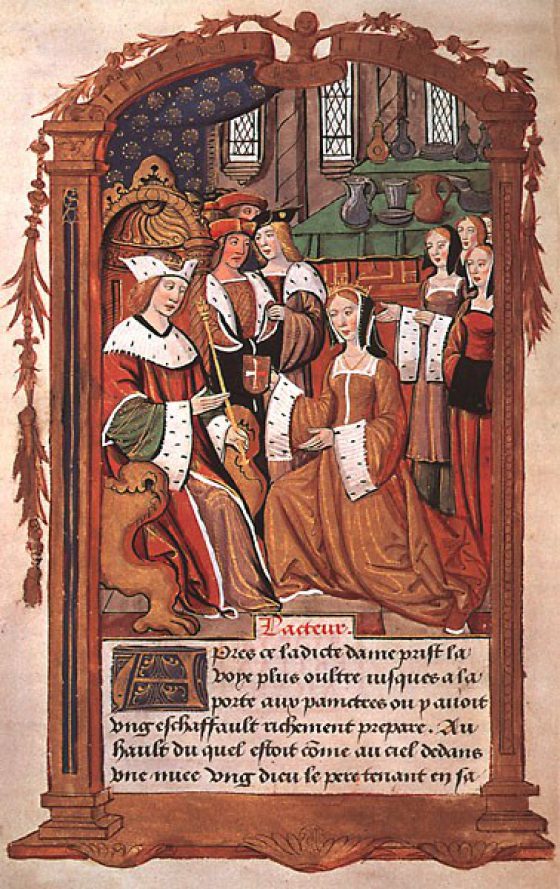 Lacteur.
Apres ce ladicte dame prist la
voye plus oultre iusques a la
porte aux painctres ou y auoit
vng eschaffault richement prepare. Au
hault du quel estoit cōme au ciel dedans
vne nuee vng dieu le pere tenant en sa